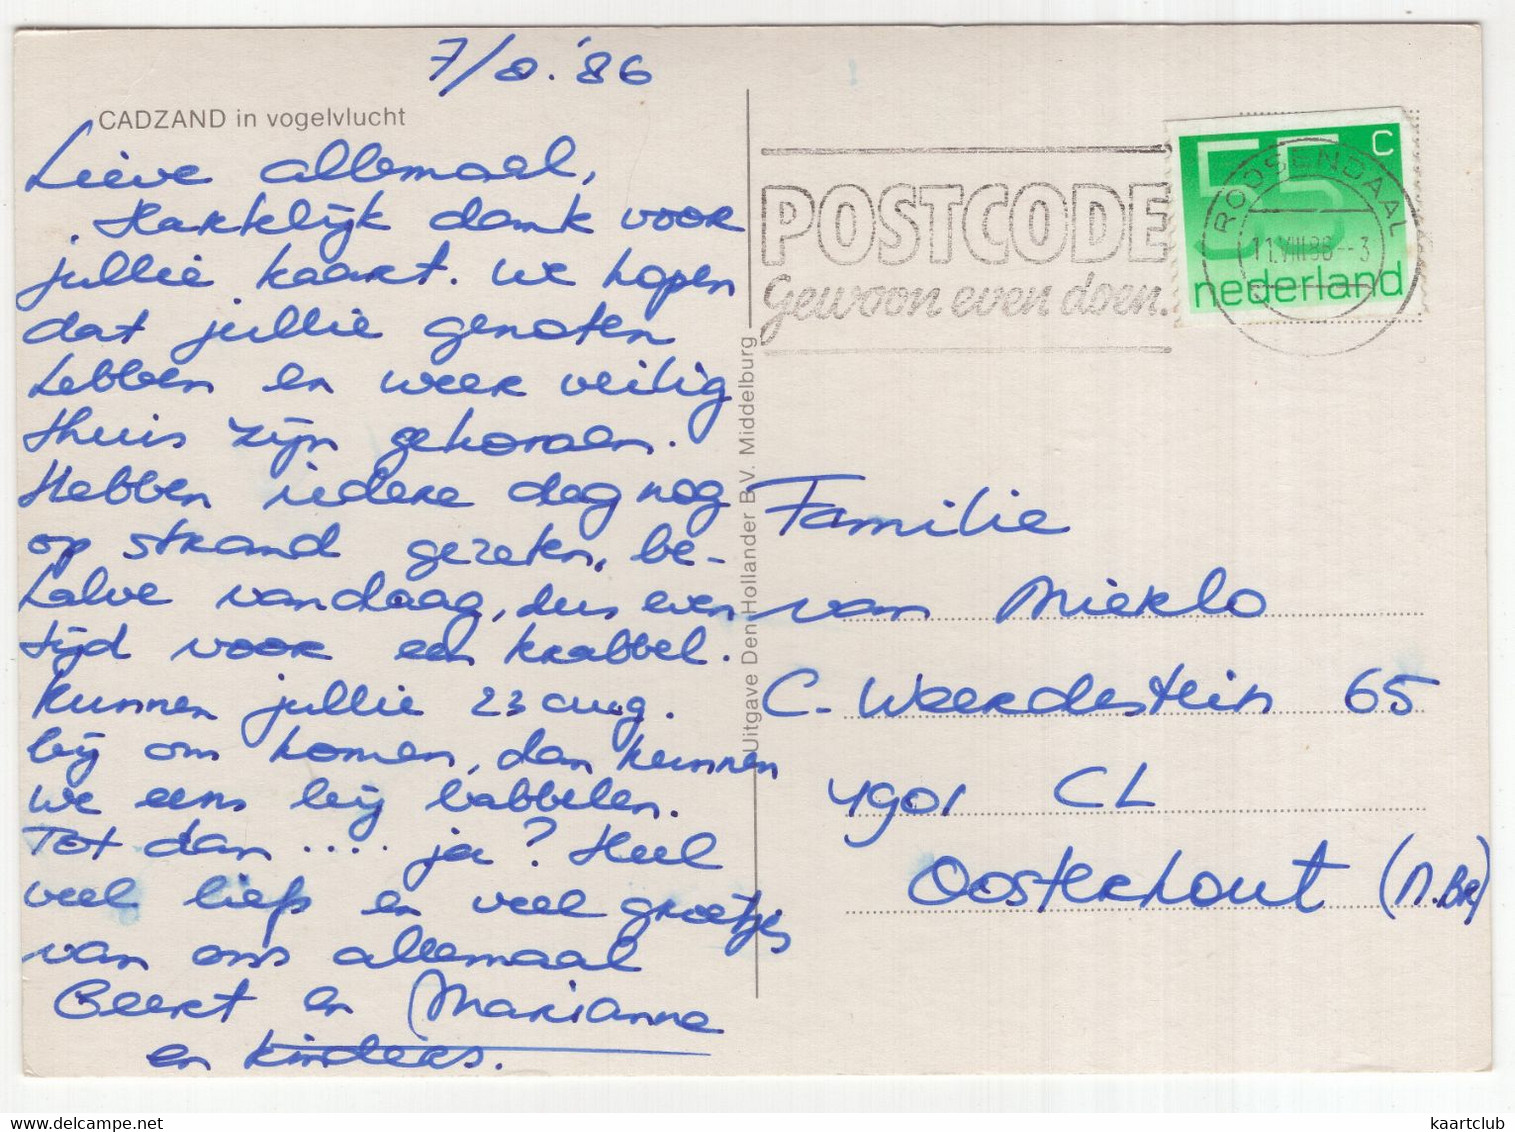 7/8.'86
CADZAND in vogelvlucht
Lieve allemaal,
Hartelijk dank voor
jullie kaart. We hopen
dat jullie genoten
hebben en weer veilig
thuis zijn gekomen.
Hebben iedere dag nog
op strand gezeten, be-
halve vandaag, dus even
tijd voor een krabbel.
Kunnen jullie 23 aug.
bij om komen, dan kunnen
we eens bij babbelen.
Tot dan .... ja? Heel
veel liefs en veel groetjes
van ons allemaal
Geert en Marianne
en kinders.
Uitgave Den Hollander B.V. Middelburg
POSTCODE
Gewoon even doen.
55 c
nederland
ROOSENDAAL
11.VIII.86--3
Familie
van Mierlo
C. Weerdestein 65
4901 CL
Oosterhout (N.BR)
kaartclub